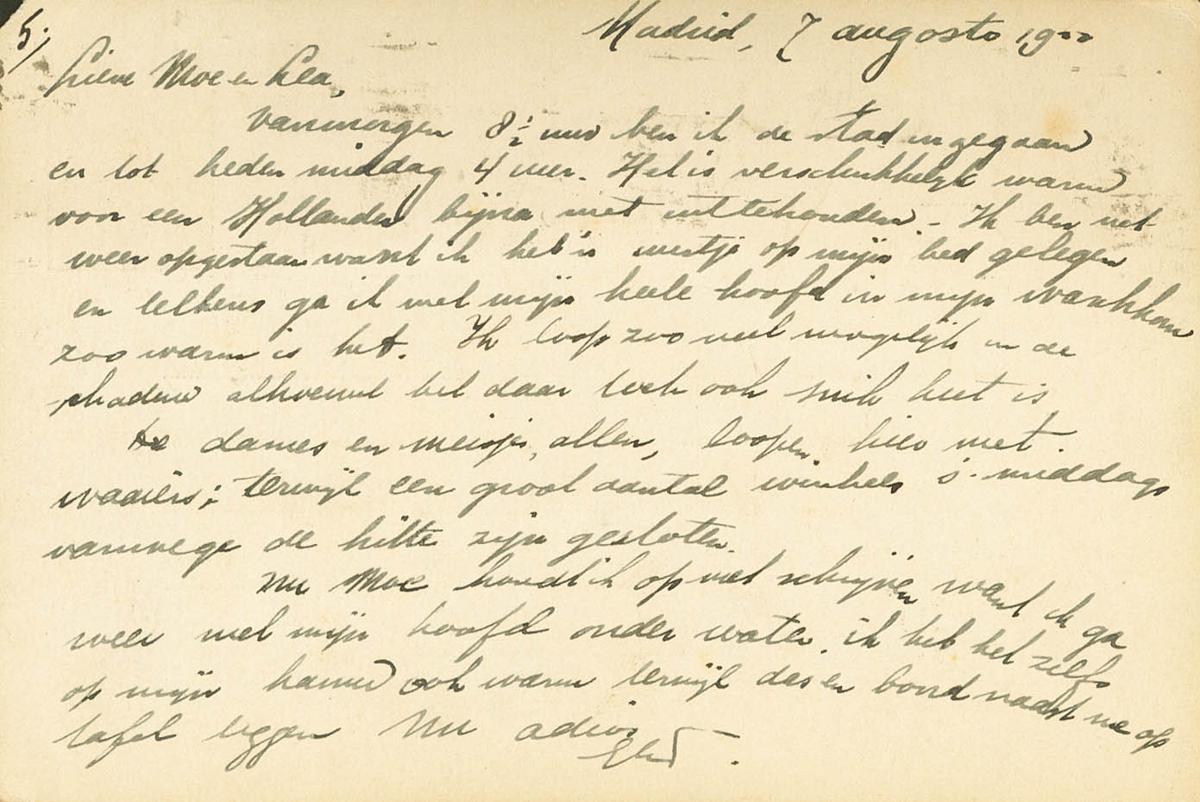 5,
Madrid, 7 augosto 19
Lieve Moe en Lea,
vanmorgen 8½ uur ben ik de stad ingegaan
en tot heden middag 4 uur. Het is verschrikkelijk warm
voor een Hollander bijna niet uittehouden. - Ik ben net
weer opgestaan want ik heb 'n uurtje op mijn bed gelegen
en telkens ga ik met mijn heele hoofd in mijn waschkom
zoo warm is het. Ik loop zoo veel mogelijk in de
schaduw alhoewel het daar toch ook snik heet is
De dames en meisjes, allen, loopen hier met
waaiers; terwijl een groot aantal winkels 's middags
vanwege de hitte zijn gesloten.
Nu Moe houdt ik op met schrijven want ik ga
weer met mijn hoofd onder water. ik heb het zelfs
op mijn kamer ook warm terwijl das en boord naast me op
tafel liggen Nu adios